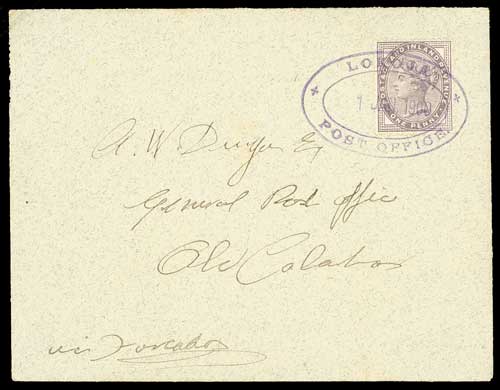 POSTAGE AND INLAND REVENUE
LOKOJA
1 JAN 1900
POST OFFICE
ONE PENNY
A. W. Esq
General Post Office
Old Calabar
via Forcados